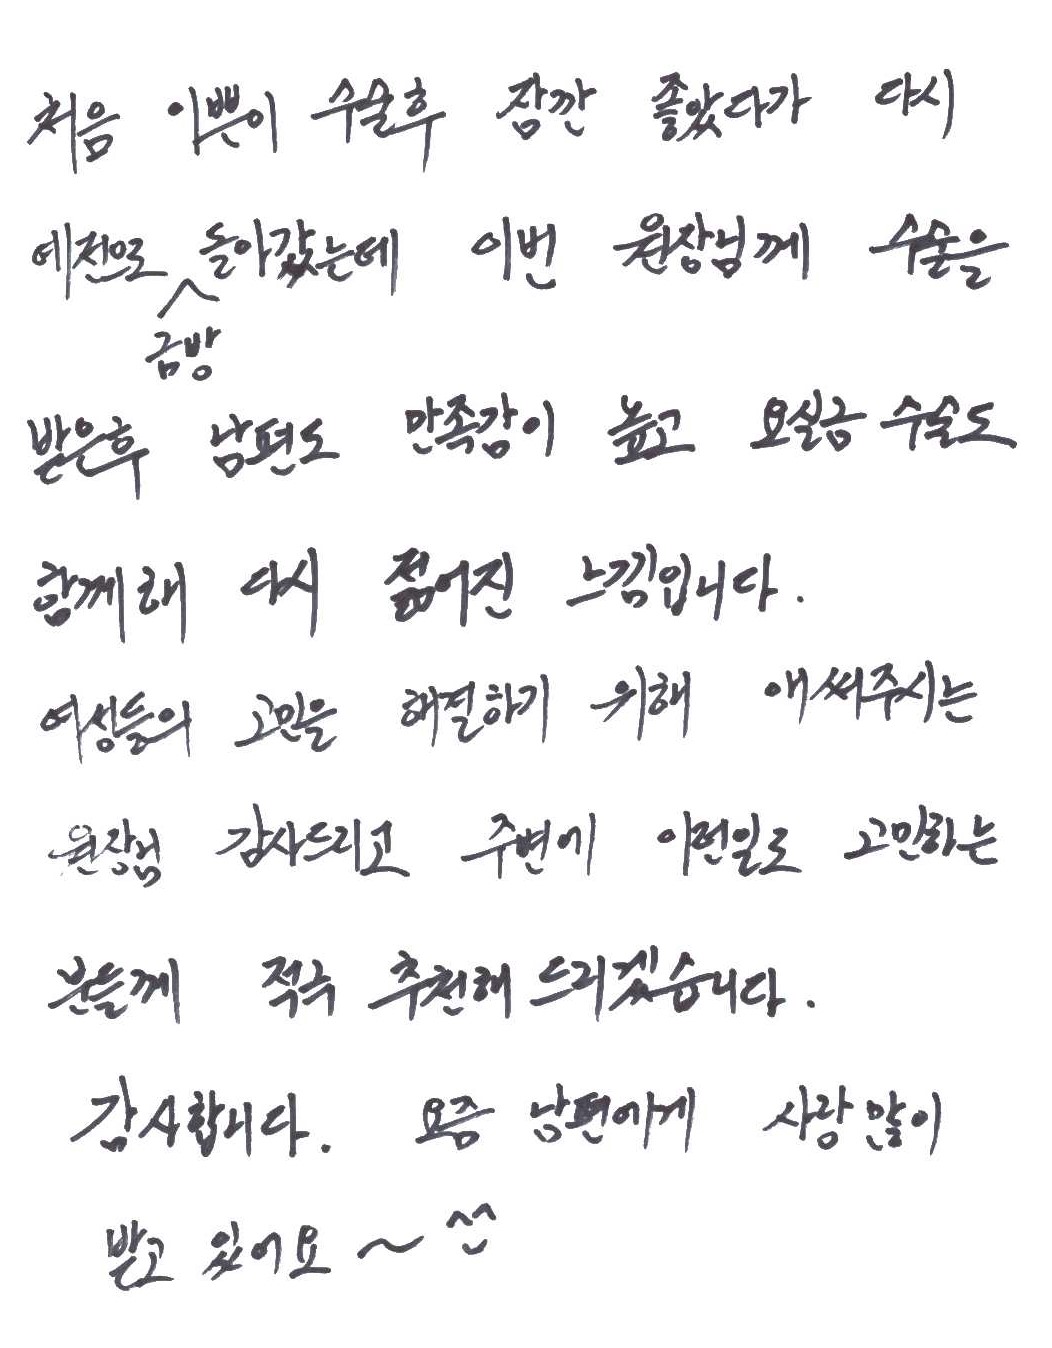 처음 이쁜이 수술후 잠깐 좋았다가 다시
예전으로 돌아갔는데 이번 원장님께 수술을
금방
받은후 남편도 만족감이 높고 요실금 수술도
함께해 다시 젊어진 느낌입니다.
여성들의 고민을 해결하기 위해 애써주시는
원장님 감사드리고 주변에 이런일로 고민하는
분들께 적극 추천해 드리겠습니다.
감사합니다. 요즘 남편에게 사랑 많이
받고 있어요~ ^^